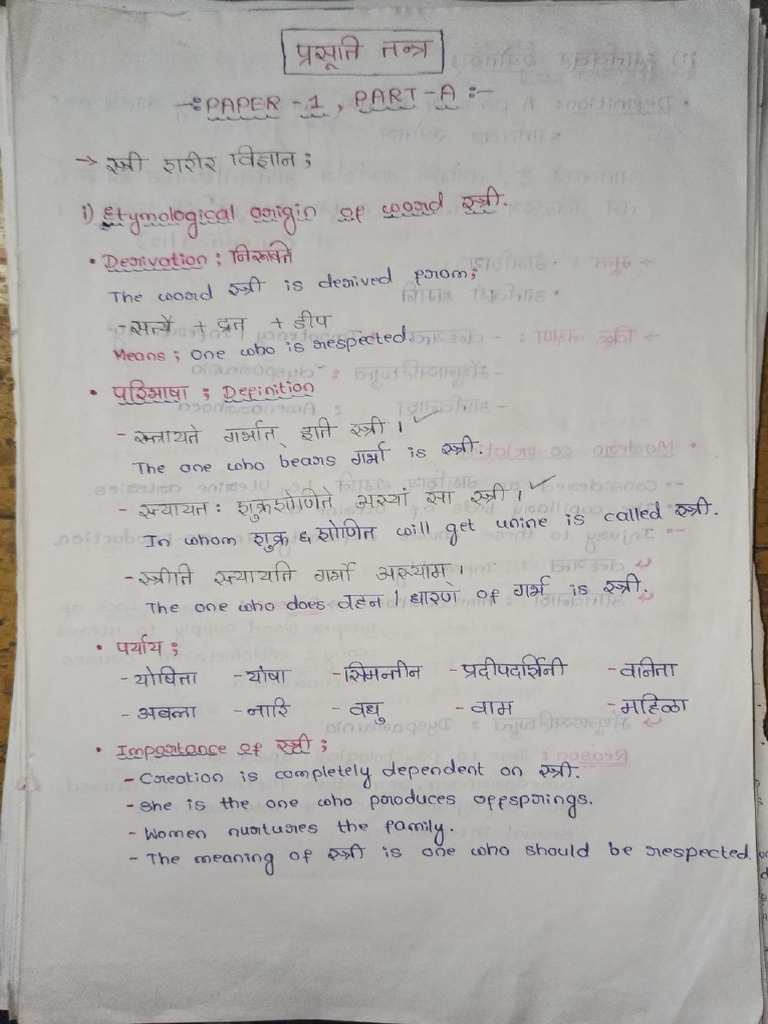 प्रसूति तन्त्र
-:PAPER - 1 , PART-A :-
→ स्त्री शरीर विज्ञान ;
i) Etymological origin of word स्त्री.
• Derivation ; निरूक्ति
The word स्त्री is derived from;
- सत्यै + द्रन + डीप
Means ; One who is respected.
• परिभाषा ; Definition
- स्त्यायते गर्भात् इति स्त्री । ✓
The one who beans गर्भा is स्त्री.
- स्त्यायतः शुक्रशोणिते अस्यां सा स्त्री । ✓
In whom शुक्र & शोणित will get unine is called स्त्री.
- स्त्रीति स्त्यायति गर्भो अस्याम् ।
The one who does वहन / धारण of गर्भ is स्त्री.
• पर्याय ;
- योषिता - योषा - सिमन्तीन - प्रदीपदर्शिनी - वनिता
- अबला - नारि - वधु - वाम - महिळा
• Importance of स्त्री ;
- Creation is completely dependent on स्त्री.
- She is the one who produces offsprings.
- Women nurtures the family.
- The meaning of स्त्री is one who should be respected.